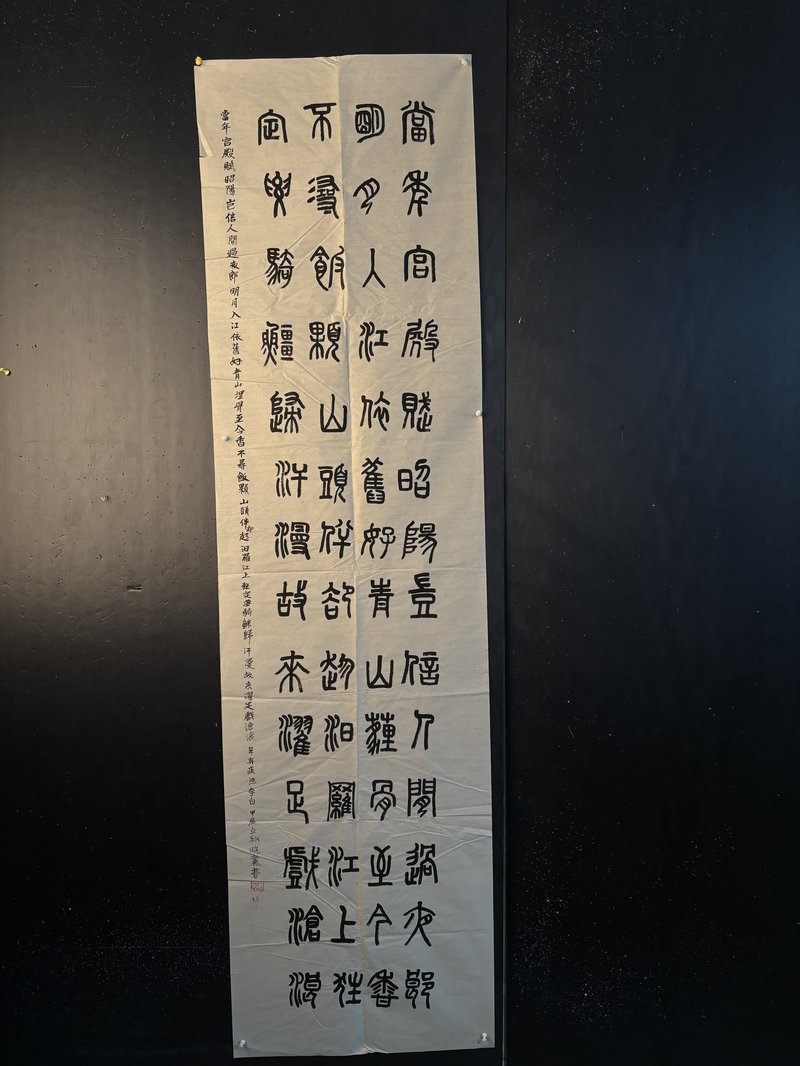 當年宫殿賦昭陽豈信人間過夜郎
明月入江依舊好青山薶骨至今香
不尋飯顆山頭伴卻趁汨羅江上狂
定要騎鯨歸汗漫故來濯足戲滄浪
當年宫殿賦昭陽豈信人間過夜郎明月入江依舊好青山埋骨至今香不尋飯顆山頭伴却趁汨羅江上狂定要騎鯨歸汗漫故來濯足戲滄浪 辛棄疾憶李白 甲辰立秋 書